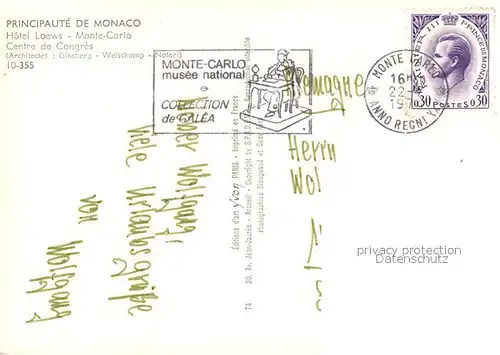 PRINCIPAUTÉ DE MONACO
Hôtel Loews - Monte-Carlo
Centre de Congrès
(Architectes : Ginsberg - Weisskamp - Notari)
10-355
MONTE-CARLO
musée national
COLLECTION
de GALÉA
MONTE CARLO
16H
22-
197
ANNO REGNI
RAINIER III PRINCE DE MONACO
0,30 POSTES 0,30
Wolfgang!
Viele Urlaubsgrüße
von
Wolfgang
Éditions d'art yvon PARIS - Imprimé en France
74 30, Av. Jean-Jaurès - Arcueil - Copyright by S.P.A.D.E.M.
Reproduction interdite
Herrn
Wol
privacy protection
Datenschutz